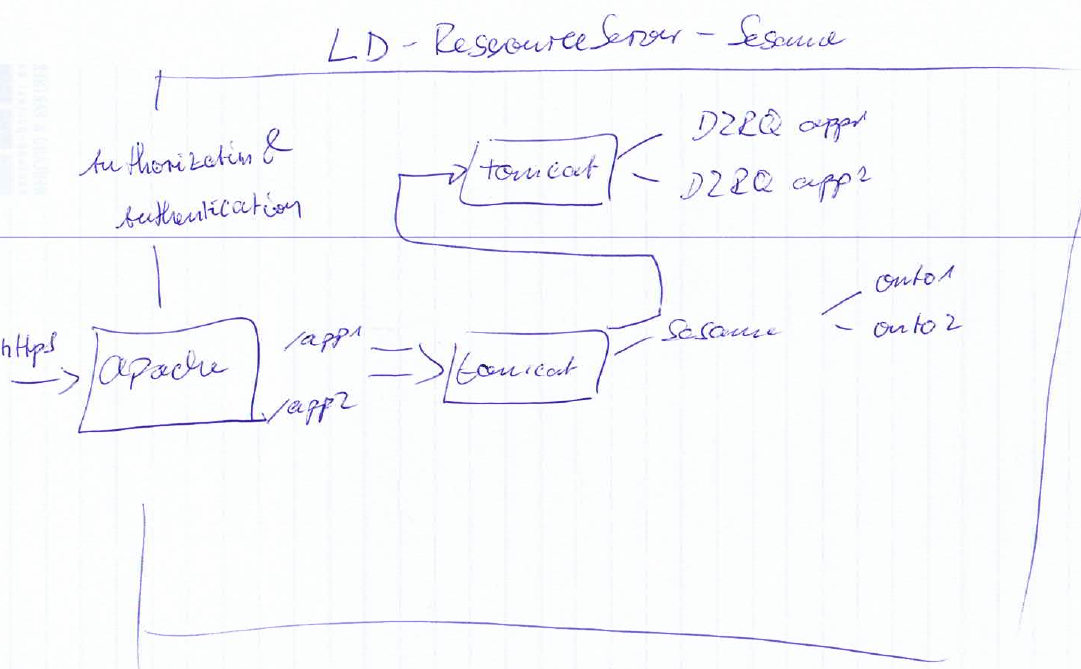 LD-RessourceServer - Sesame
Authorization &
Authentication
tomcat
D2RQ app1
D2RQ app2
https
apache
/app1
/app2
tomcat
Sesame
onto1
onto2